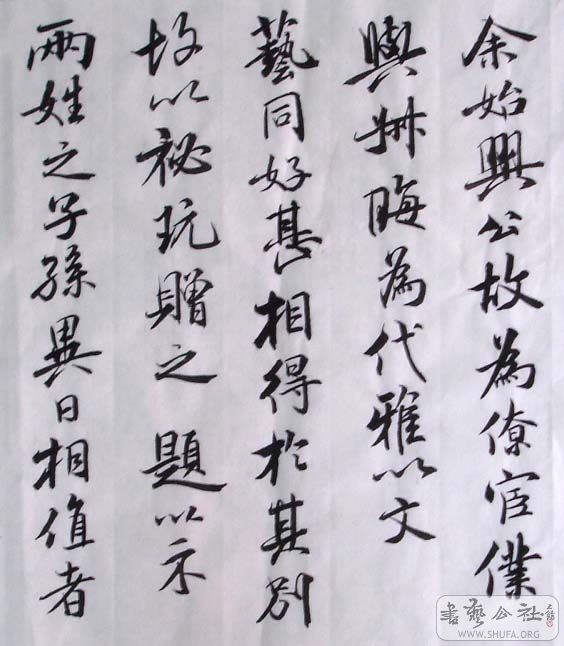 余始興公故為僚宦僕
與叔晦為代雅以文
藝同好甚相得於其別
故以祕玩贈之 題以示
兩姓之子孫異日相值者
書藝公社
WWW.SHUFA.ORG